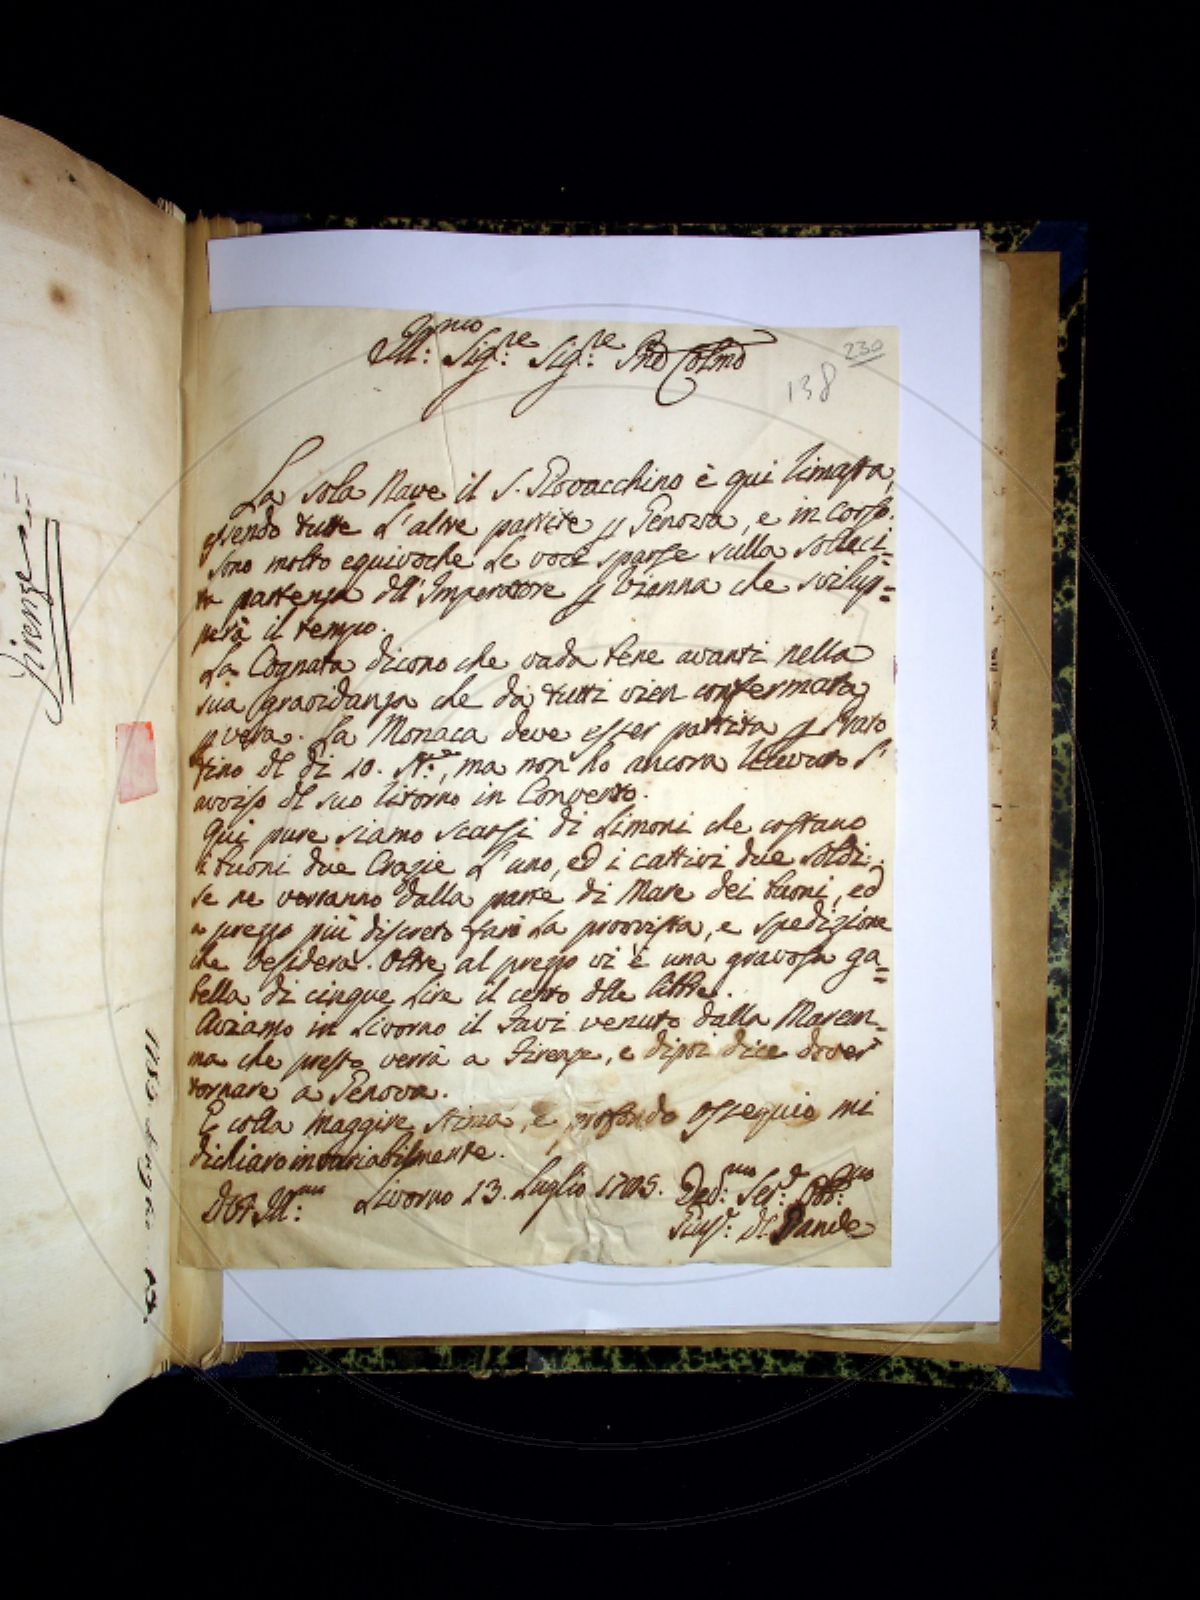 Ill:mo Sig:re Sig:re Pne Colmo
230
138
La sola Nave il S. Giovacchino è qui rimasta,
essendo tutte l'altre partite p Genova, e in corso.
Sono molto equivoche le voci sparse sulla solleci=
ta partenza dell'Imperatore p Vienna che svilup=
perà il tempo.
La Cognata dicono che vada bene avanti nella
sua gravidanza che da tutti vien confermata
p vera. La Monaca deve esser partita p Prato
fino del di 10. , ma non ho ancora ricevuto l'
avviso del suo ritorno in Convento.
Qui pure siamo scarsi di Limoni che costano
i buoni due Crazie l'uno, ed i cattivi due soldi:
se ne verranno dalla parte di Mare dei buoni, ed
a prezzo più discreto farò la provvista, e spedizione
che desidera. Oltre al prezzo vi è una gravosa ga=
bella di cinque Lire il cento delle libbre.
Aviamo in Livorno il Favi venuto dalla Marem=
ma che presto verrà a Firenze, e dipoi dice dover
tornare a Genova.
E colla maggire stima, e profondo ossequio mi
dichiaro invariabilmente.
Livorno 13. Luglio 1785. Dev:mo Ser:e Obb:mo
Gius:e del
Firenze